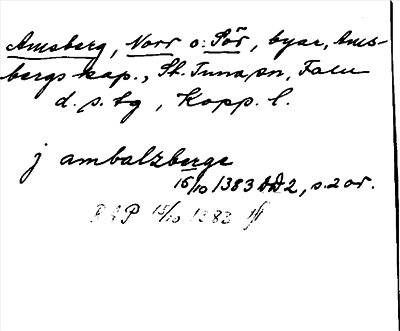 Amsberg, Norr o. Sör, byar, Ams-
bergs kap., St. Tuna sn, Falu
d. s. tg, Kopp. l.
j ambalzberge
16/10 1383 DD 2, s. 2 or.
RAP 16/10 1383